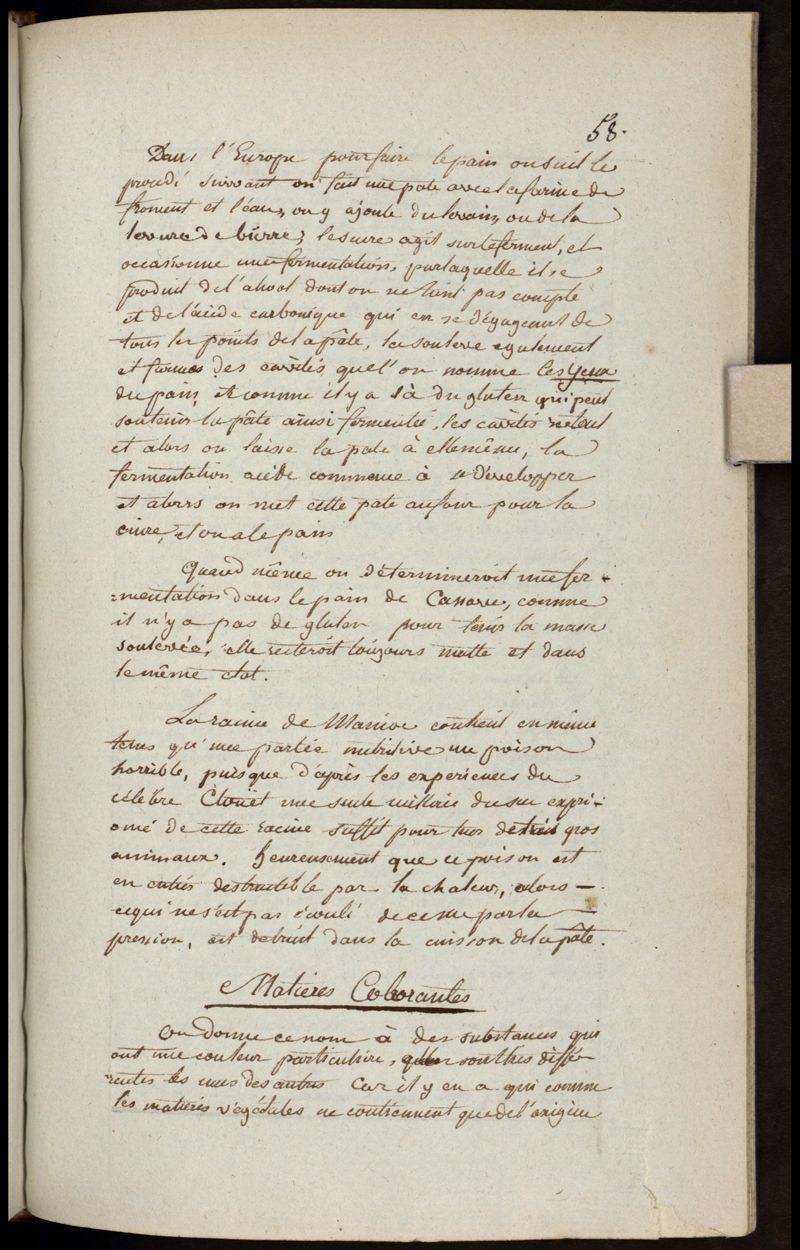 58.
Dans l'Europe pour faire le pain on suit le
procédé suivant on fait une pate avec la farine de
froment et l'eau, on y ajoute du levain, ou de la
levure de bierre; le sucre agit sur le ferment, et
occasionne une fermentation, par laquelle il se
produit de l'alcool dont on ne tient pas compte
et de l'acide carbonique qui en se dégageant de
tous les points de la pâte, la souleve egalement
et forme des cavités que l'on nomme les yeux
du pain, et comme il y a là du gluten qui peut
soutenir la pâte ainsi fermentée, les cavités restent
et alors on laisse la pate à elle même, la
fermentation acide commence à se developper
et alors on met cette pate au four pour la
cuire, et on a le pain
Quand même on détermineroit une fer-
=mentation dans le pain de Cassave, comme
il n'y a pas de gluten pour tenir la masse
soulevée, elle resteroit toujours matte et dans
le même etat.
La racine de Manioc contient en même
tems qu'une partie nutritive un poison
horrible, puisque d'après les experiences du
célébre Clouet une seule cuillerée du suc expri-
mé de cette racine suffit pour tuer de très gros
animaux. heureusement que ce poison est
en entier destructible par la chaleur, alors —
ce qui ne s'est pas écoulé de ce suc par la —
pression, est detruit dans la cuisson de la pâte.
Matieres Colorantes
On donne ce nom à des substances qui
ont une couleur particuliere, elles sont très diffé-
rentes les unes des autres car il y en a qui comme
les matieres végétales ne contiennent que de l'oxigène